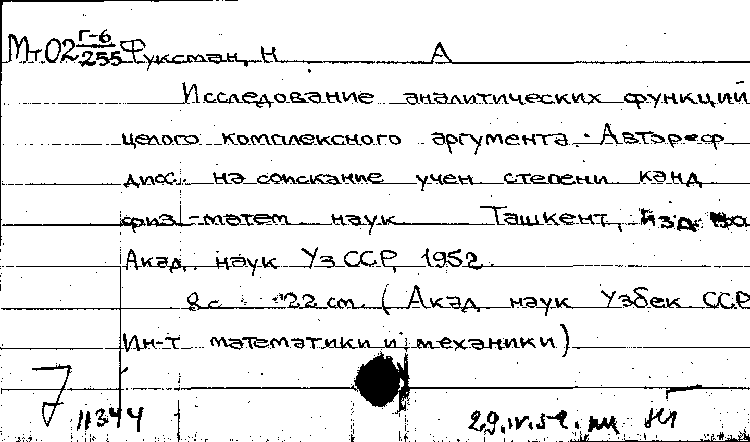 Мт02 Г-6/255 Фуксман, Н А
Исследование аналитических функций
целого комплексного аргумента. Автореф
дисс. на соискание учен степени канд
физ.-матем наук Ташкент, изд-во
Акад. наук УзССР, 1952.
8 с 22 см. (Акад наук Узбек ССР
Ин-т математики и механики)
7 11344 29.IV.52.